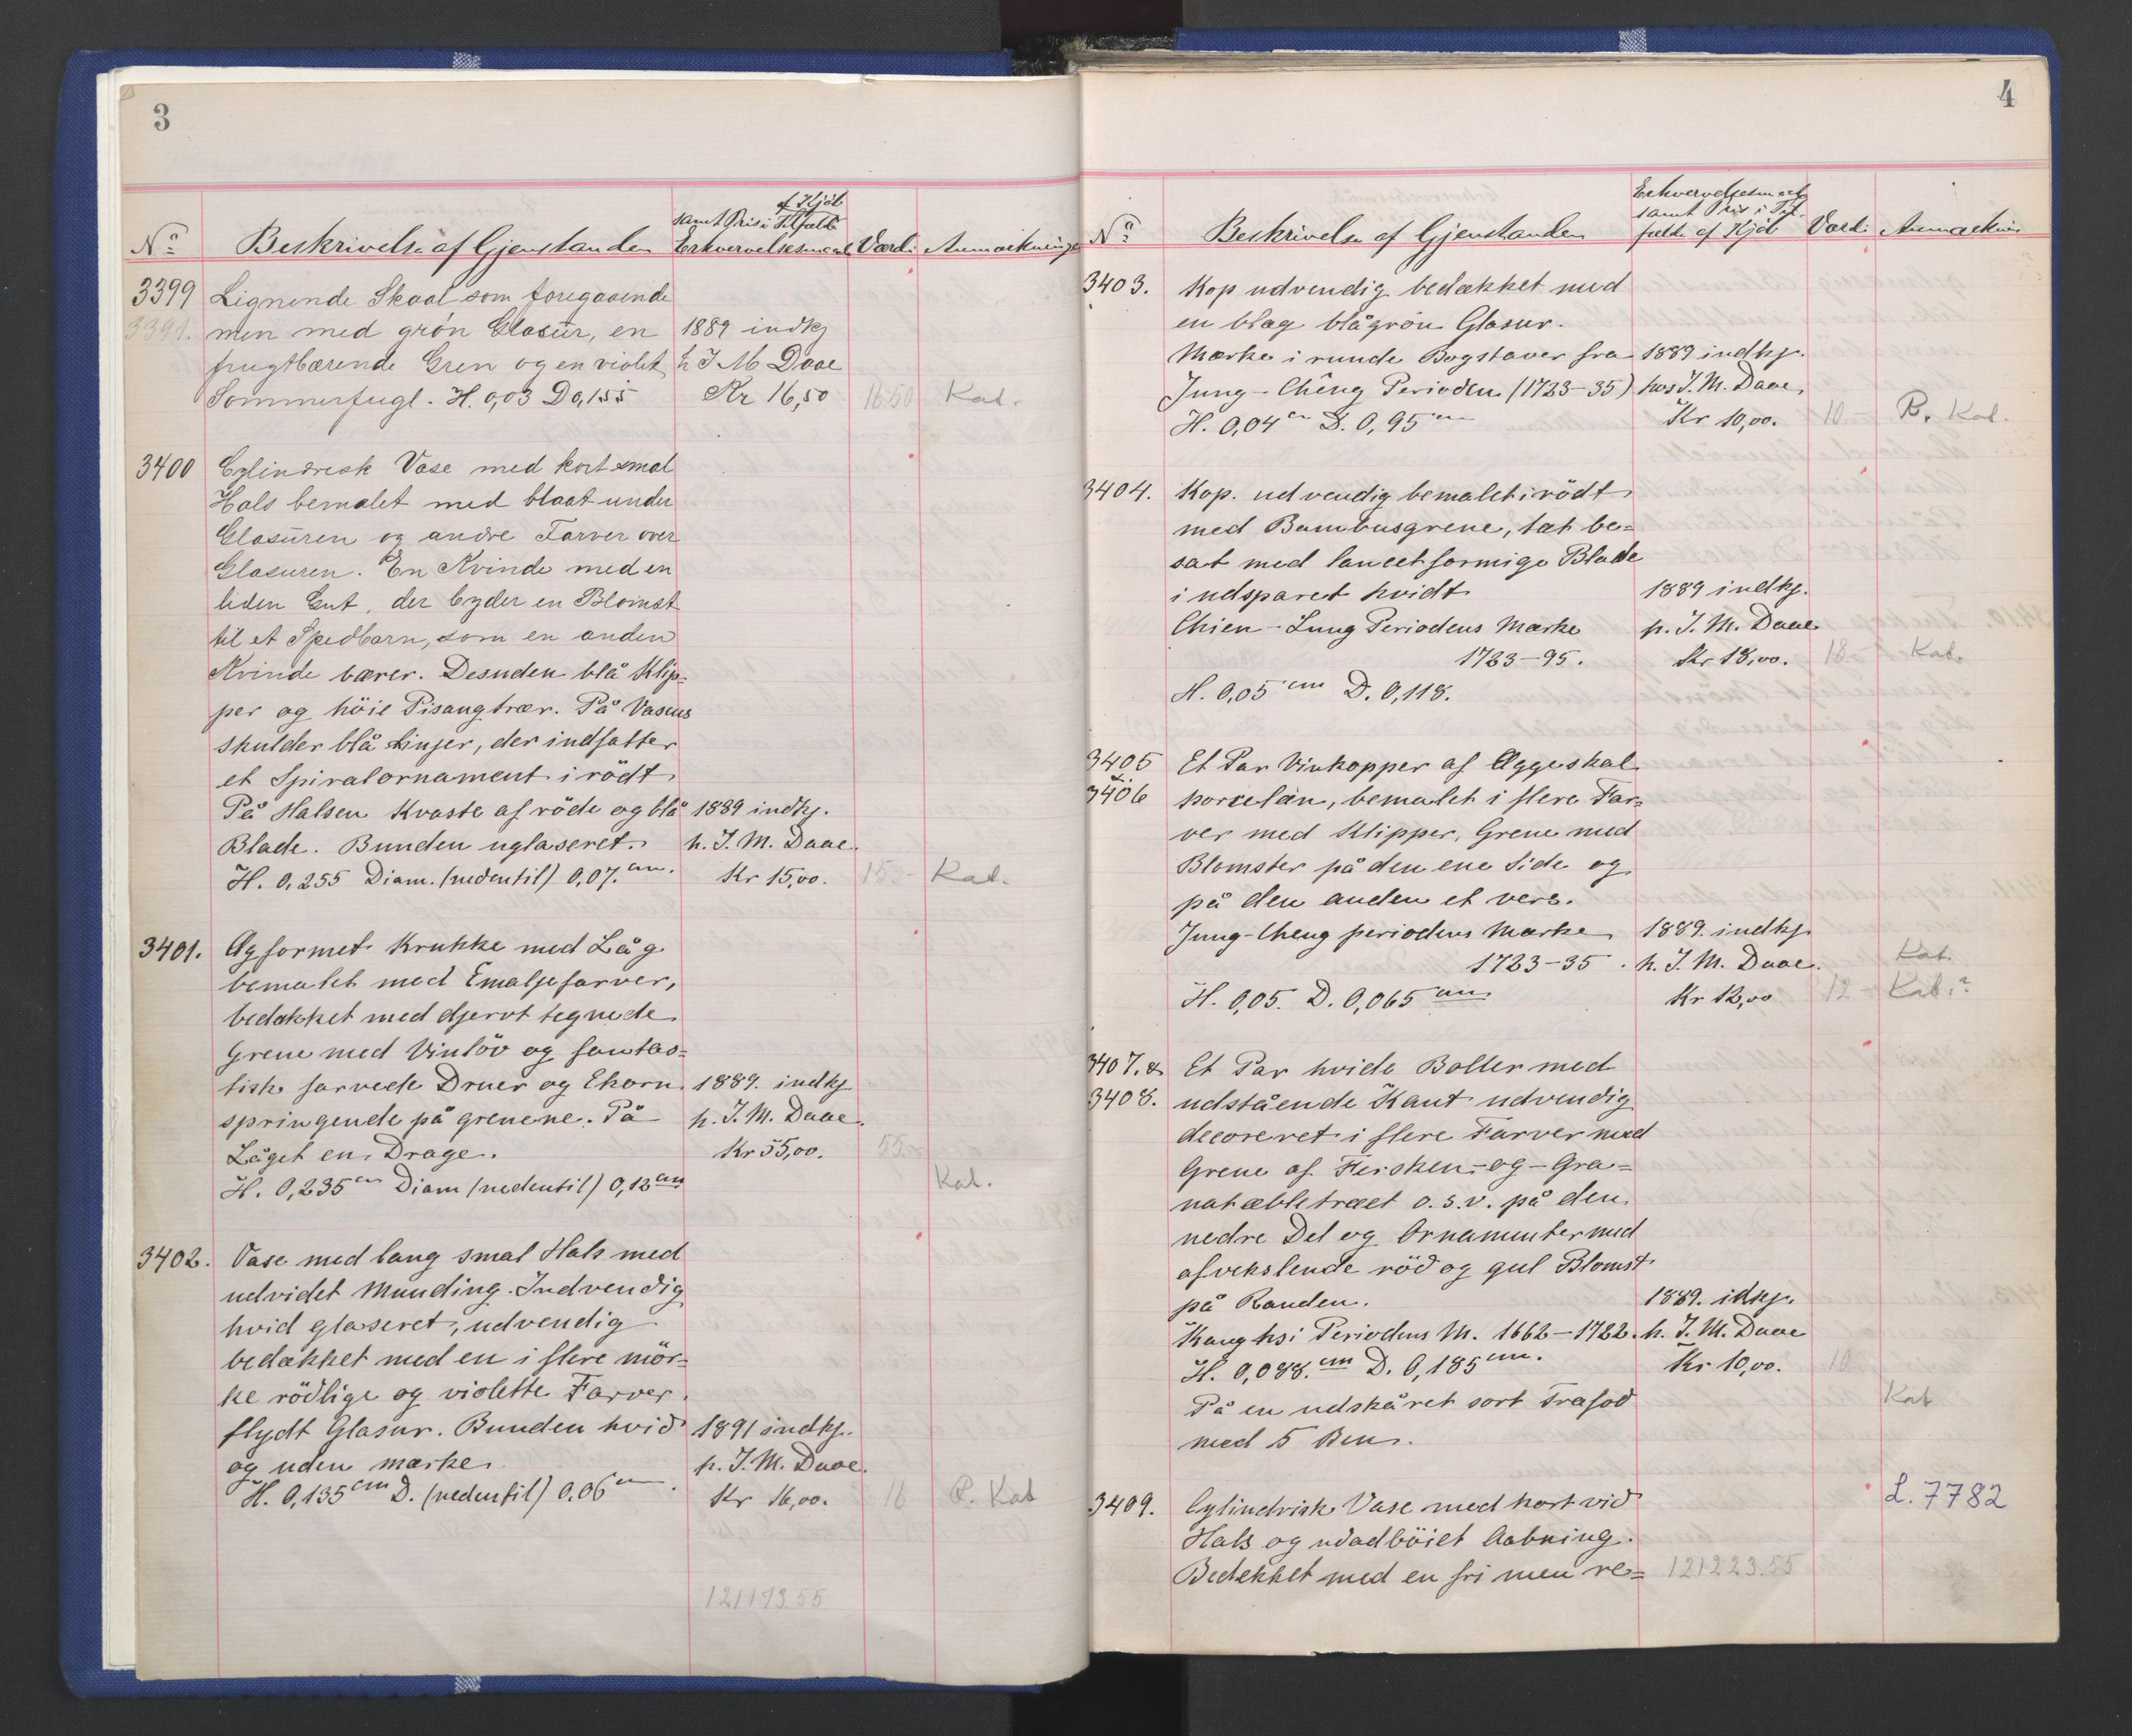 3
of Kjöb
samt Pris i Tilfælde
No Beskrivelse af Gjenstanden Erhvervelsesmaade Værdi Anmærkninger
3399 Lignende Skaal som foregaaende
3391. men med grön Glasur, en 1889 indkj
frugtbærende Gren og en violet h J M Daae
Sommerfugl. H. 0,03 D 0,155 Kr 16,50 16.50 Kat.
3400 Cylindrisk Vase med kort smal
Hals bemalet med blaat under
Glasuren og andre Farver over
Glasuren. En Kvinde med en
liden Gut, der byder en Blomst
til et Spedbarn, som en anden
Kvinde bærer. Desuden blå Klip=
per og höie Pisangtrær. På Vasens
skulder blå Linjer, der indfatter
et Spiralornament i rödt.
På Halsen Kvaste af röde og blå 1889 indkj.
Blade. Bunden uglaseret. h. J. M. Daae.
H. 0,255 Diam. (nedentil) 0,07. cm. Kr 15,00. 15.- Kat.
3401. Ægformet Krukke med Låg
bemalet med Emaljefarver,
bedækket med djervt tegnede
Grene med Vinlöv og fantas=
tisk farvede Druer og Ekorn 1889. indkj
springende på grenene. På h. J. M. Daae.
Låget en Drage. Kr 55,00. 55.-
H. 0,235 cm Diam (nedentil) 0,12 cm Kat.
3402. Vase med lang smal Hals med
udvidet Munding. Indvendig
hvid glaseret, udvendig
bedækket med en i flere mör=
ke rödlige og violette Farver
flydt Glasur. Bunden hvid 1891 indkj.
og uden mærke. h. J. M. Daae.
H. 0,135 cm D. (nedentil) 0,06 cm. Kr 16,00. 16 P. Kat
121173.55
4
Erhvervelsesmaade
samt Pris i Til-
No Beskrivelse af Gjenstanden fælde af Kjöb Værdi Anmærkning
3403. Kop udvendig bedækket med
en blag blågrön Glasur.
Mærke i runde Bogstaver fra 1889 indkj.
Jung-Chêng Perioden (1723-35) hos J. M. Daae,
H. 0,04 cm D. 0,95 cm Kr 10,00. 10.- P. Kat.
3404. Kop. udvendig bemalet i rödt
med Bambusgrene, tæt be=
sat med lancetformige Blade
i udsparet hvidt 1889 indkj.
Chien-Lung Periodens Mærke h. J. M. Daae
1723-95. Kr 18,00. 18- Kat.
H. 0,05 cm D. 0,118.
3405 Et Par Vinkopper af Æggeskal
3406 porcelæn, bemalet i flere Far=
ver med Klipper, Grene med
Blomster på den ene Side og
på den anden et vers.
Jung-Cheng periodens Mærke 1889. indkj
1723-35. h. J. M. Daae. Kat.
H. 0,05. D. 0,065 cm Kr 12,00 12- Kat.?
3407. & Et Par hvide Boller med
3408. udstående Kant udvendig
decoreret i flere Farver med
Grene af Fersken-og-Gra=
natæbletræet o.s.v. på den
nedre Del og Ornamenter med
afvekslende röd og gul Blomst
på Randen. 1889. idkj.
Kang hsi Periodens M. 1662-1722. h. J. M. Daae
H. 0,088. cm D. 0,185 cm. Kr 10,00. 10
På en udskåret sort Træfod Kat
med 5 Ben.
3409. Cylindrisk Vase med kort vid L.7782
Hals og udadböiet Aabning.
Bedækket med en fri men re= 121223.55